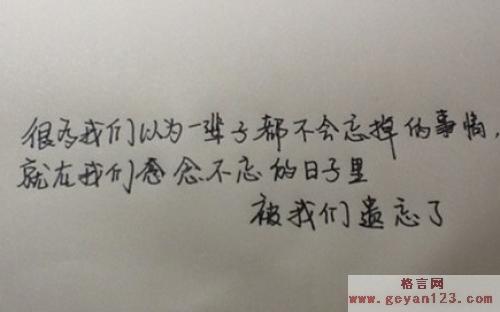 很多我们以为一辈子都不会忘掉的事情，
就在我们念念不忘的日子里
被我们遗忘了
格言网
www.geyan123.com